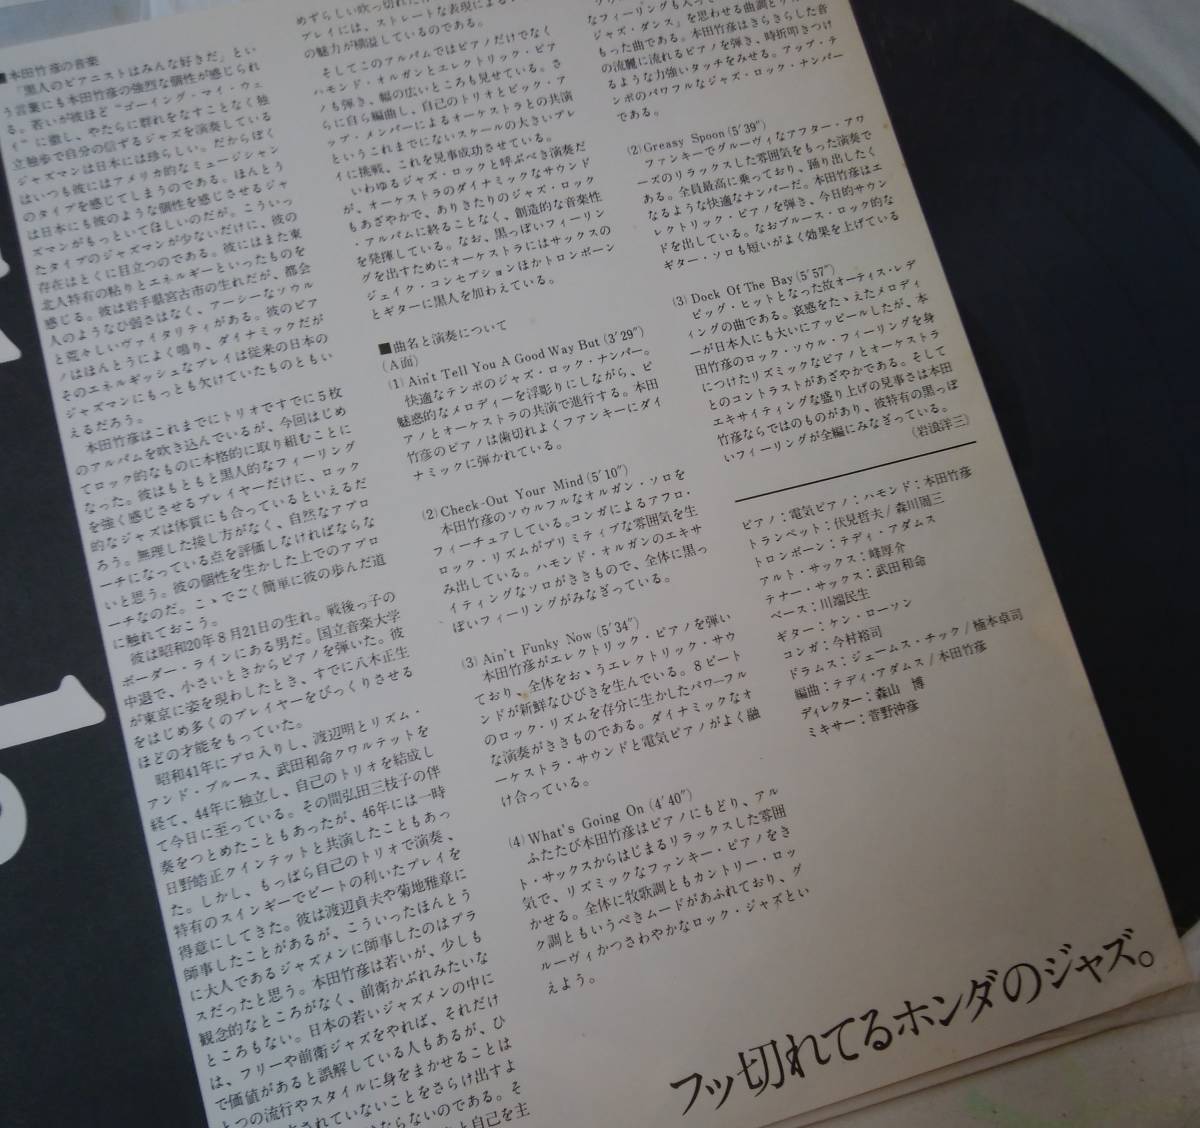 ■本田竹彦の音楽
「黒人のピアニストはみんな好きだ」とい
う言葉にも本田竹彦の強烈な個性が感じられ
る。若いが彼ほど“ゴーイング・マイ・ウェ
イ”に徹し、やたらに群れをなすことなく独
立独歩で自分の信ずるジャズを演奏している
ジャズマンは日本には珍らしい。だからぼく
はいつも彼にはアメリカ的なミュージシャン
のタイプを感じてしまうのである。ほんとう
は日本にも彼のような個性を感じさせるジャ
ズマンがもっといてほしいのだが。こういっ
たタイプのジャズマンが少ないだけに、彼の
存在はとくに目立つのである。彼にはまた東
北人特有の粘りとエネルギーといったものを
感じる。彼は岩手県宮古市の生れだが、都会
人のようなひ弱さはなく、アーシーなソウル
と荒々しいヴァイタリティがある。彼のピア
ノはほんとうによく鳴り、ダイナミックだが
そのエネルギッシュなプレイは従来の日本の
ジャズマンにもっとも欠けていたものともい
えるだろう。
本田竹彦はこれまでにトリオですでに5枚
のアルバムを吹き込んでいるが、今回はじめ
てロック的なものに本格的に取り組むことに
なった。彼はもともと黒人的なフィーリング
を強く感じさせるプレイヤーだけに、ロック
的なジャズは体質にも合っているといえるだ
ろう。無理した接し方がなく、自然なアプロ
ーチになっている点を評価しなければならな
いと思う。彼の個性を生かした上でのアプロ
ーチなのだ。こゝでごく簡単に彼の歩んだ道
に触れておこう。
彼は昭和20年8月21日の生れ。戦後っ子の
ボーダー・ラインにある男だ。国立音楽大学
中退で、小さいときからピアノを弾いた。彼
が東京に姿を現わしたとき、すでに八木正生
をはじめ多くのプレイヤーをびっくりさせる
ほどの才能をもっていた。
昭和41年にプロ入りし、渡辺明とリズム・
アンド・ブルース、武田和命クワルテットを
経て、44年に独立し、自己のトリオを結成し
て今日に至っている。その間弘田三枝子の伴
奏をつとめたこともあったが、46年には一時
日野皓正クインテットと共演したこともあっ
た。しかし、もっぱら自己のトリオで演奏、
特有のスインギーでビートの利いたプレイを
得意にしてきた。彼は渡辺貞夫や菊地雅章に
師事したことがあるが、こういったほんとう
に大人であるジャズメンに師事したのはプラ
スだったと思う。本田竹彦は若いが、少しも
観念的なところがなく、前衛かぶれみたいな
ところもない。日本の若いジャズメンの中に
は、フリーや前衛ジャズをやれば、それだけ
で価値があると誤解している人もあるが、ひ
とつの流行やスタイルに身をまかせることは
されていないことをさらけ出すよ
ならないのである。そ
と自己を主
プレイには、ストレートな表現による
の魅力が横溢しているのである。
そしてこのアルバムではピアノだけでなく
ハモンド・オルガンとエレクトリック・ピア
ノも弾き、幅の広いところも見せている。さ
らに自ら編曲し、自己のトリオとピック・ア
ップ・メンバーによるオーケストラとの共演
というこれまでにないスケールの大きいプレ
イに挑戦、これを見事成功させている。
いわゆるジャズ・ロックと呼ぶべき演奏だ
が、オーケストラのダイナミックなサウンド
もあざやかで、ありきたりのジャズ・ロック
・アルバムに終ることなく、創造的な音楽性
を発揮している。なお、黒っぽいフィーリン
グを出すためにオーケストラにはサックスの
ジェイク・コンセプションほかトロンボーン
とギターに黒人を加わえている。
■曲名と演奏について
(A面)
(1) Ain't Tell You A Good Way But (3′29″)
快適なテンポのジャズ・ロック・ナンバー。
魅惑的なメロディーを浮彫りにしながら、ピ
アノとオーケストラの共演で進行する。本田
竹彦のピアノは歯切れよくファンキーにダイ
ナミックに弾かれている。
(2) Check-Out Your Mind (5′10″)
本田竹彦のソウルフルなオルガン・ソロを
フィーチュアしている。コンガによるアフロ・
ロック・リズムがプリミティブな雰囲気を生
み出している。ハモンド・オルガンのエキサ
イティングなソロがききもので、全体に黒っ
ぽいフィーリングがみなぎっている。
(3) Ain't Funky Now (5′34″)
本田竹彦がエレクトリック・ピアノを弾い
ており、全体をおゝうエレクトリック・サウ
ンドが新鮮なひびきを生んでいる。8ビート
のロック・リズムを存分に生かしたパワーフル
な演奏がききものである。ダイナミックなオ
ーケストラ・サウンドと電気ピアノがよく融
け合っている。
(4) What's Going On (4′40″)
ふたたび本田竹彦はピアノにもどり、アル
ト・サックスからはじまるリラックスした雰囲
気で、リズミックなファンキー・ピアノをき
かせる。全体に牧歌調ともカントリー・ロッ
ク調ともいうべきムードがあふれており、グ
ルーヴィかつさわやかなロック・ジャズとい
えよう。
なフィーリングも入って
ジャズ・ダンス」を思わせる曲調と
もった曲である。本田竹彦はきらきらした音
の流麗に流れるピアノを弾き、時折叩きつけ
るような力強いタッチをみせる。アップ・テ
ンポのパワフルなジャズ・ロック・ナンバー
である。
(2) Greasy Spoon (5′39″)
ファンキーでグルーヴィなアフター・アワ
ーズのリラックスした雰囲気をもった演奏で
ある。全員最高に乗っており、踊り出したく
なるような快適なナンバーだ。本田竹彦はエ
レクトリック・ピアノを弾き、今日的サウン
ドを出している。なおブルース・ロック的な
ギター・ソロも短いがよく効果を上げている
(3) Dock Of The Bay (5′57″)
ビッグ・ヒットとなった故オーティス・レデ
ィングの曲である。哀感をたゝえたメロディ
ーが日本人にも大いにアッピールしたが、本
田竹彦のロック・ソウル・フィーリングを身
につけたリズミックなピアノとオーケストラ
とのコントラストがあざやかである。そして
エキサイティングな盛り上げの見事さは本田
竹彦ならではのものがあり、彼特有の黒っぽ
いフィーリングが全編にみなぎっている。
(岩浪洋三)
ピアノ：電気ピアノ：ハモンド：本田竹彦
トランペット：伏見哲夫／森川周三
トロンボーン：テディ・アダムス
アルト・サックス：峰厚介
テナー・サックス：武田和命
ベース：川端民生
ギター：ケン・ローソン
コンガ：今村裕司
ドラムス：ジェームス・チック／楠本卓司
編曲：テディ・アダムス／本田竹彦
ディレクター：森山　博
ミキサー：菅野沖彦
フッ切れてるホンダのジャズ。